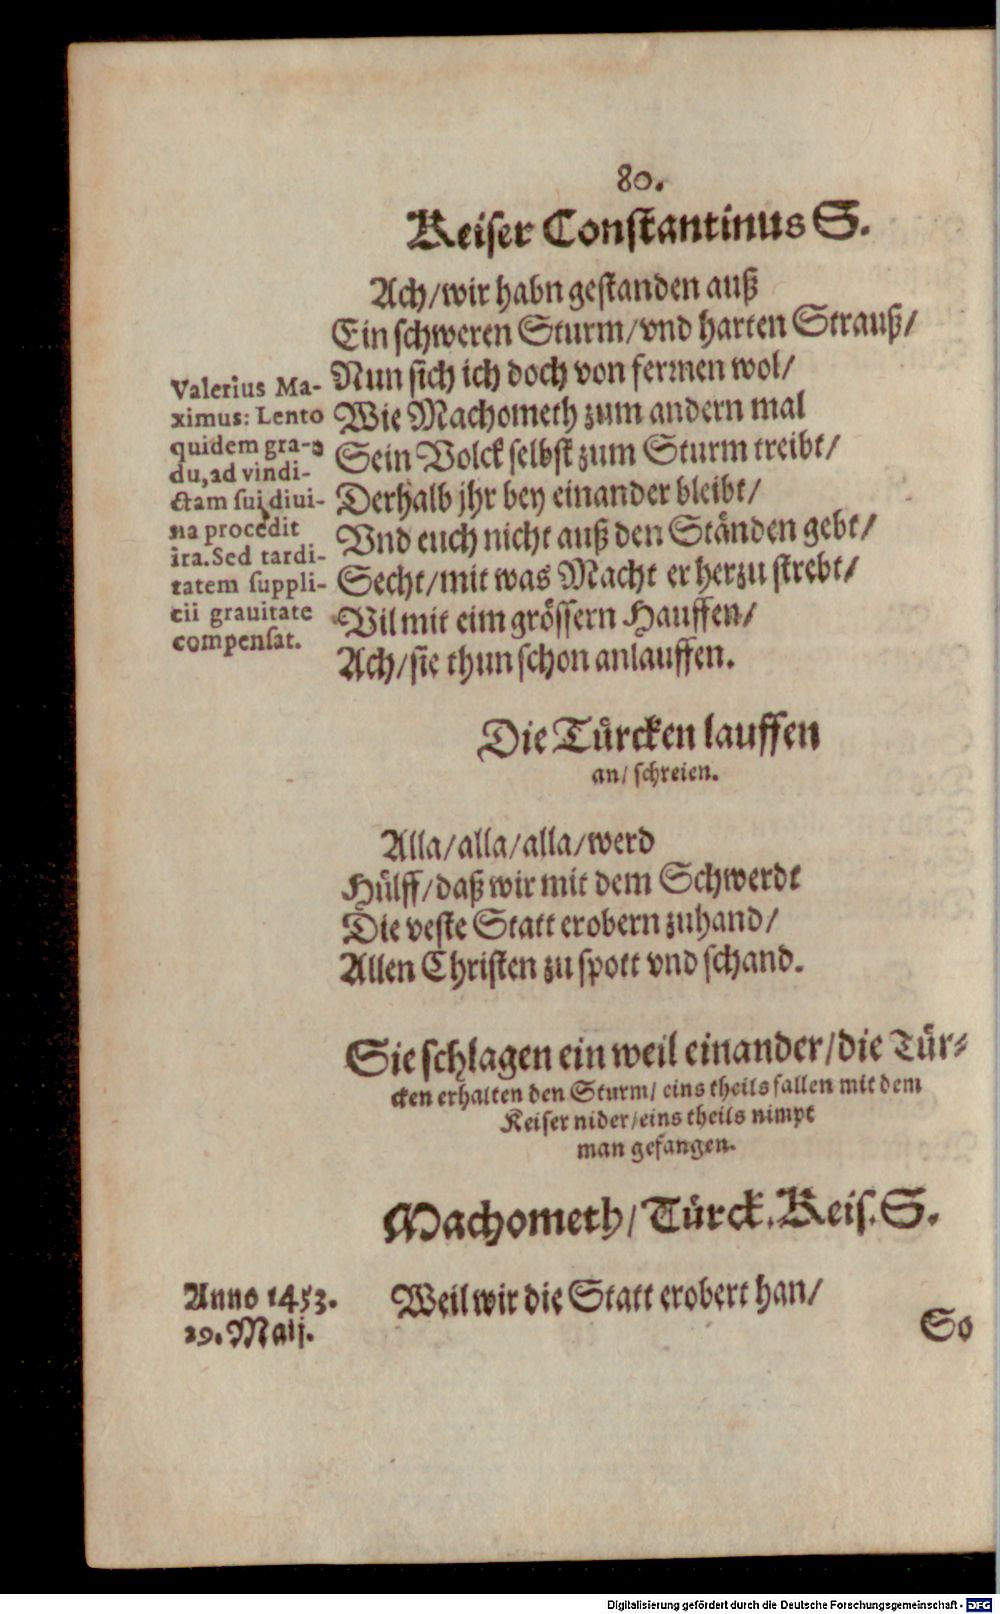 80.
Keiser Constantinus S.
Ach/wir habn gestanden auß
Ein schweren Sturm/vnd harten Strauß/
Nun sich ich doch von fermen wol/
Wie Machometh zum andern mal
Sein Volck selbst zum Sturm treibt/
Derhalb jhr bey einander bleibt/
Vnd euch nicht auß den Ständen gebt/
Secht/mit was Macht er herzu strebt/
Vil mit eim grössern Hauffen/
Ach/sie thun schon anlauffen.
Valerius Ma-
ximus: Lento
quidem gra-
du, ad vindi-
ctam sui diui-
na procedit
ira. Sed tardi-
tatem suppli-
cii grauitate
compensat.
Die Türcken lauffen
an/ schreien.
Alla/alla/alla/werd
Hülff/daß wir mit dem Schwerdt
Die veste Statt erobern zuhand/
Allen Christen zu spott vnd schand.
Sie schlagen ein weil einander/die Tür-
cken erhalten den Sturm/ eins theils fallen mit dem
Keiser nider/eins theils nimpt
man gefangen.
Machometh/Türck. Keis. S.
Anno 1453.
29. Maij.
Weil wir die Statt erobert han/
So
Digitalisierung gefördert durch die Deutsche Forschungsgemeinschaft - DFG